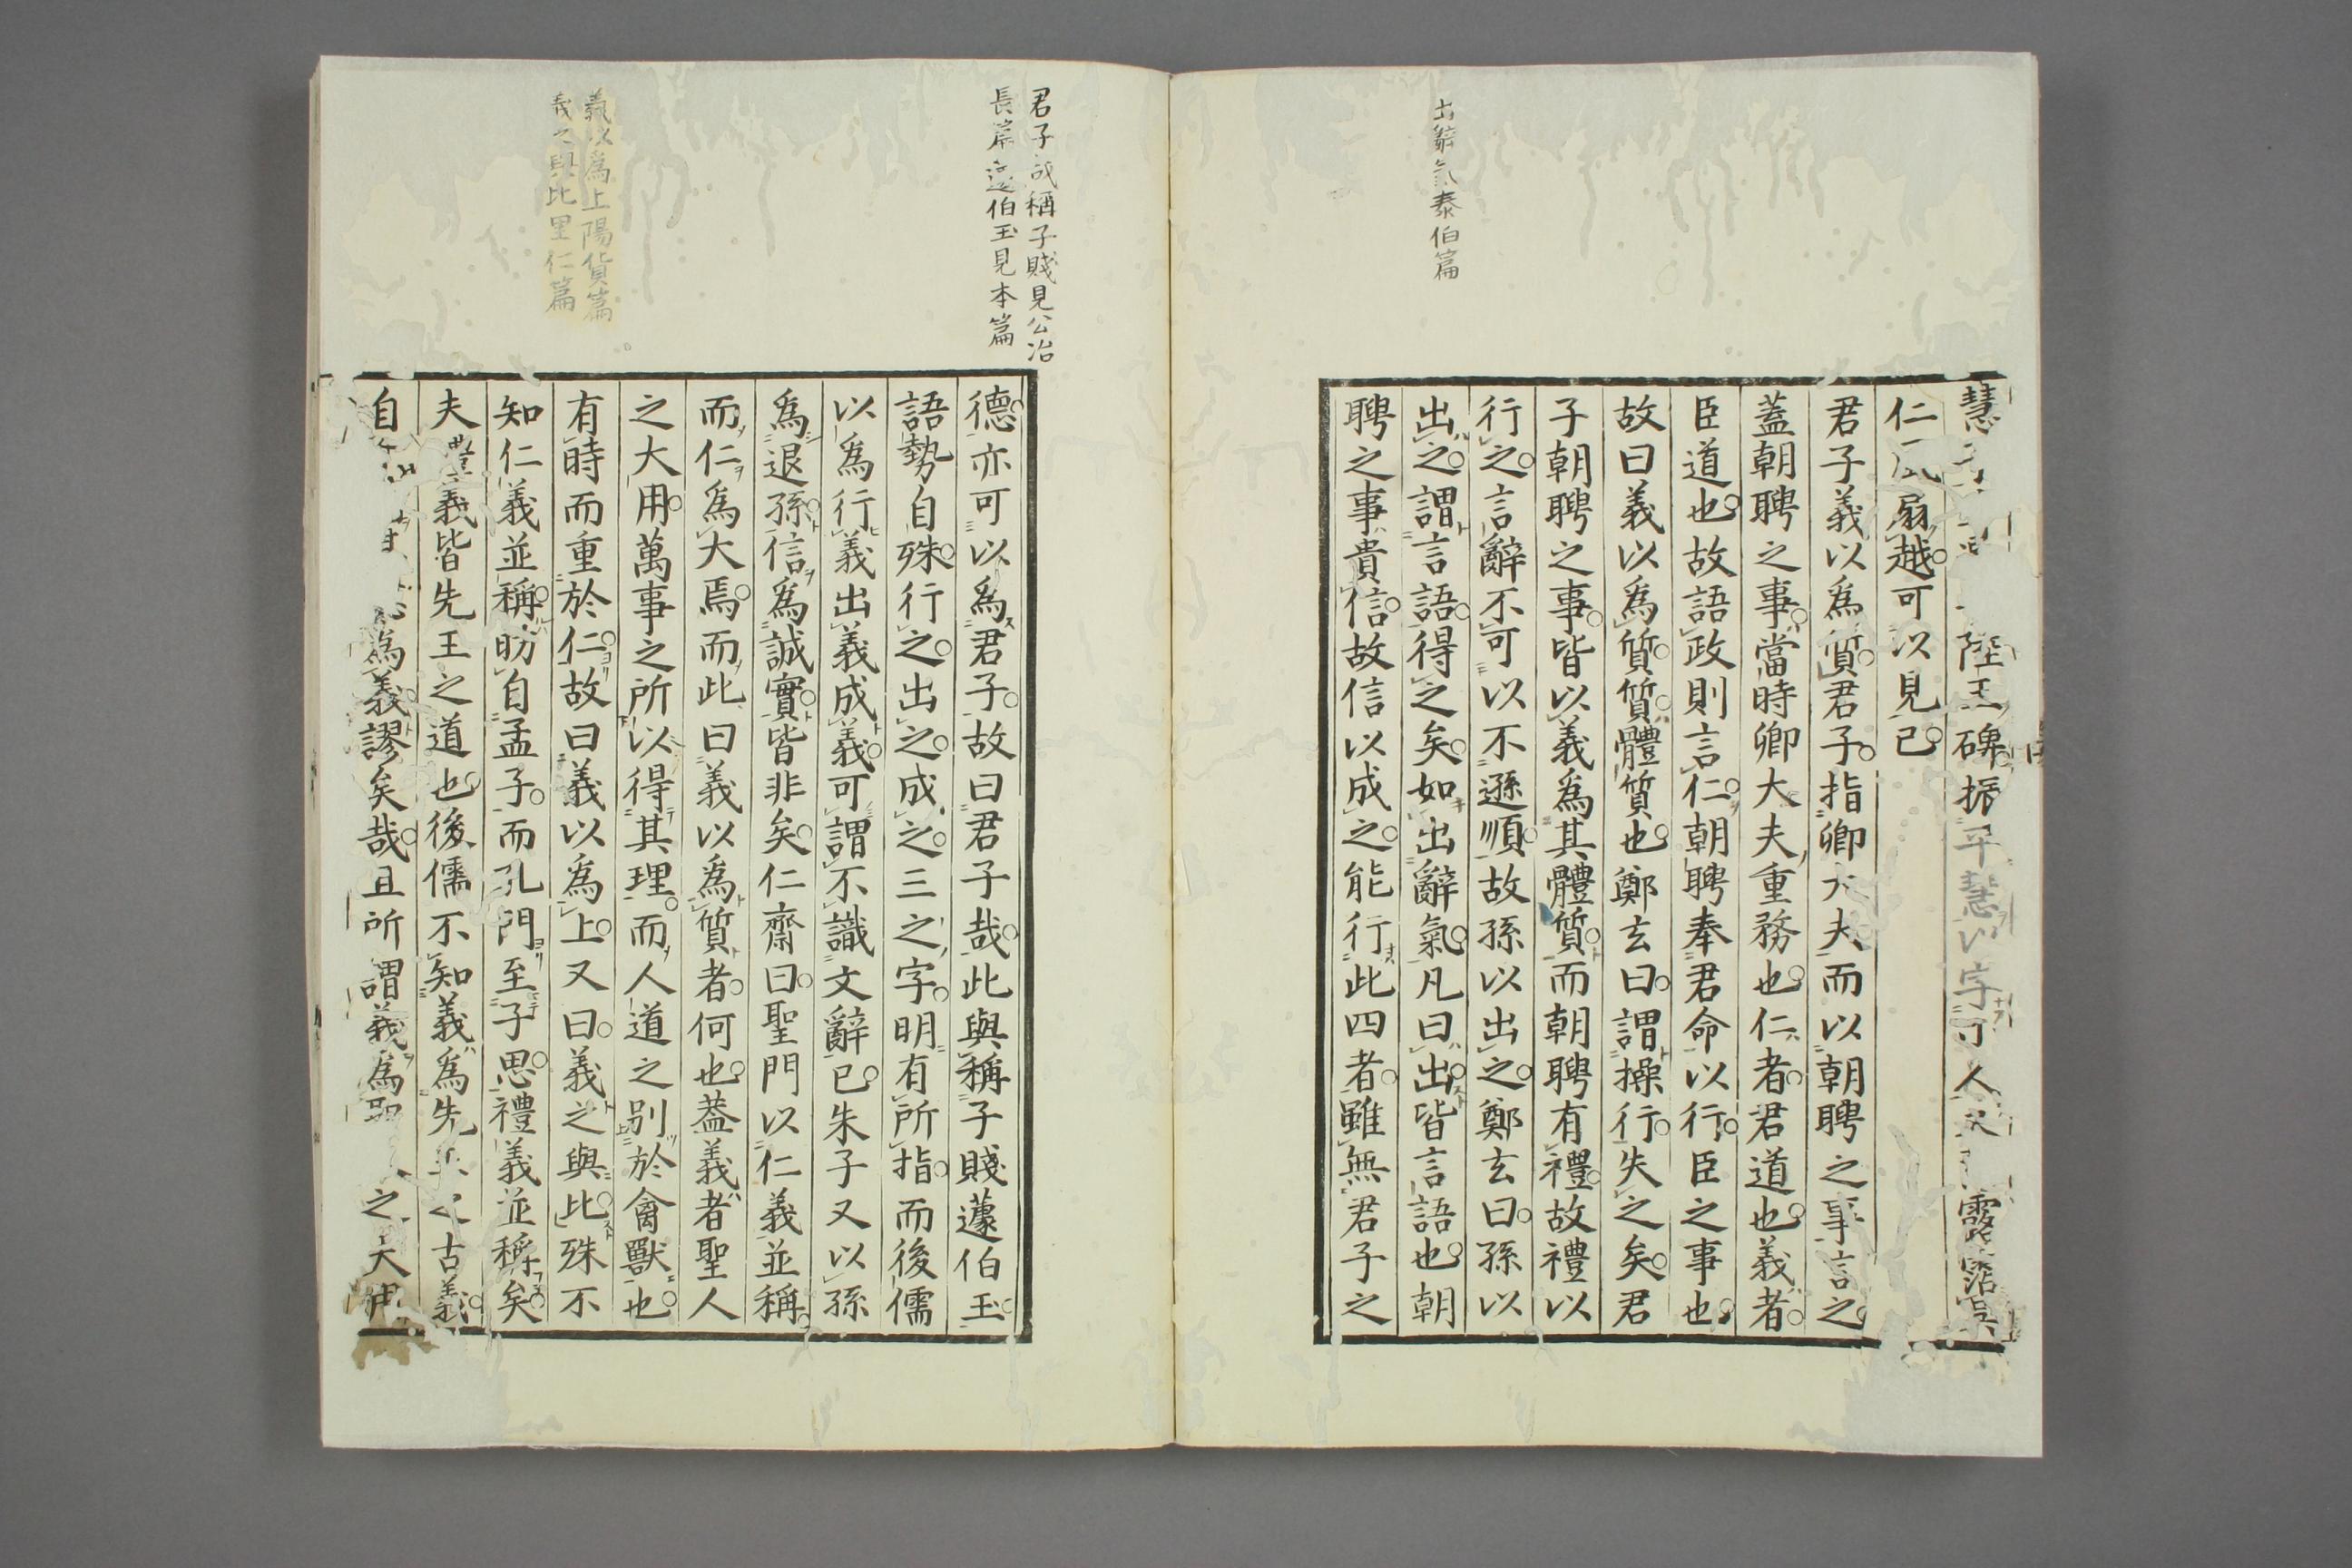 出辭氣泰伯篇
慧陸王碑振平慧以字可人又露霑吳
仁風扇越可以見已
君子義以爲質君子指卿大夫而以朝聘之事言之
蓋朝聘之事當時卿大夫重務也仁者君道也義者
臣道也故語政則言仁朝聘奉君命以行臣之事也
故曰義以爲質質體質也鄭玄曰謂操行失之矣君
子朝聘之事皆以義爲其體質而朝聘有禮故禮以
行之言辭不可以不遜順故孫以出之鄭玄曰孫以
出之謂言語得之矣如出辭氣凡曰出皆言語也朝
聘之事貴信故信以成之能行此四者雖無君子之
君子哉稱子賤見公冶
長篇蘧伯玉見本篇
義以爲上陽貨篇
義之與比里仁篇
德亦可以爲君子故曰君子哉此與稱子賤蘧伯玉
語勢自殊行之出之成之三之字明有所指而後儒
以爲行義出義成義可謂不識文辭已朱子又以孫
爲退孫信爲誠實皆非矣仁齋曰聖門以仁義並稱
而仁爲大焉而此曰義以爲質者何也蓋義者聖人
之大用萬事之所以得其理而人道之別於禽獸也
有時而重於仁故曰義以爲上又曰義之與比殊不
知仁義並稱昉自孟子而孔門至子思禮義並稱矣
夫禮義皆先王之道也後儒不知義爲先王之古義
自爲義謬矣哉且所謂義爲聖人之大用